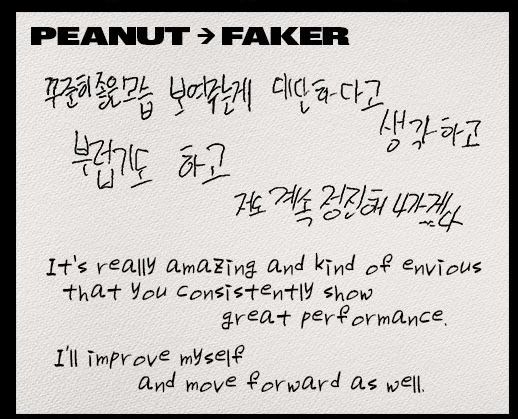 PEANUT → FAKER
꾸준히 좋은 모습 보여주는게 대단하다고
생각하고
부럽기도 하고
저도 계속 정진해 나가겠다
It's really amazing and kind of envious
that you consistently show
great performance.
I'll improve myself
and move forward as well.